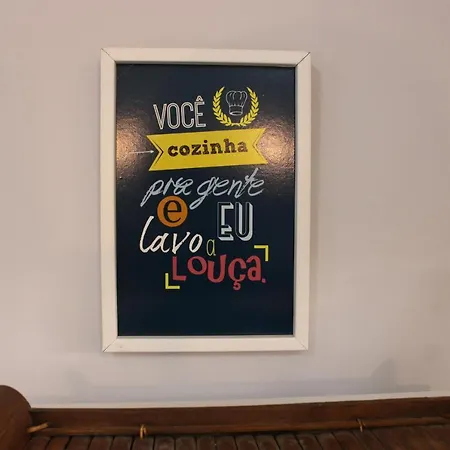 VOCÊ
cozinha
pra gente
e EU
lavo a
LOUÇA.